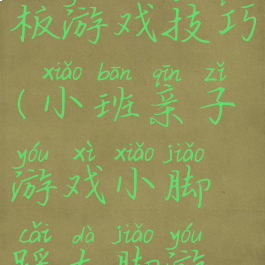 板游戏技巧
xiǎo bān qīn zǐ
(小班亲子
yóu xì xiǎo jiǎo
游戏小脚
cǎi dà jiǎo yóu
踩大脚游